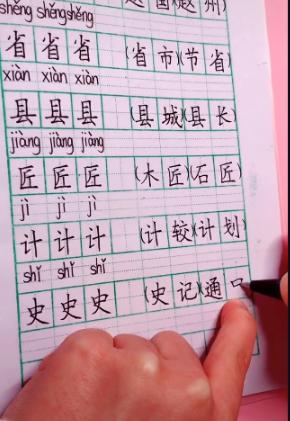 shěng shěng shěng
省省省 (省市)(节省)
xiàn xiàn xiàn
县县县 (县城)(县长)
jiàng jiàng jiàng
匠匠匠 (木匠)(石匠)
jì jì jì
计计计 (计较)(计划)
shǐ shǐ shǐ
史史史 (史记)(通